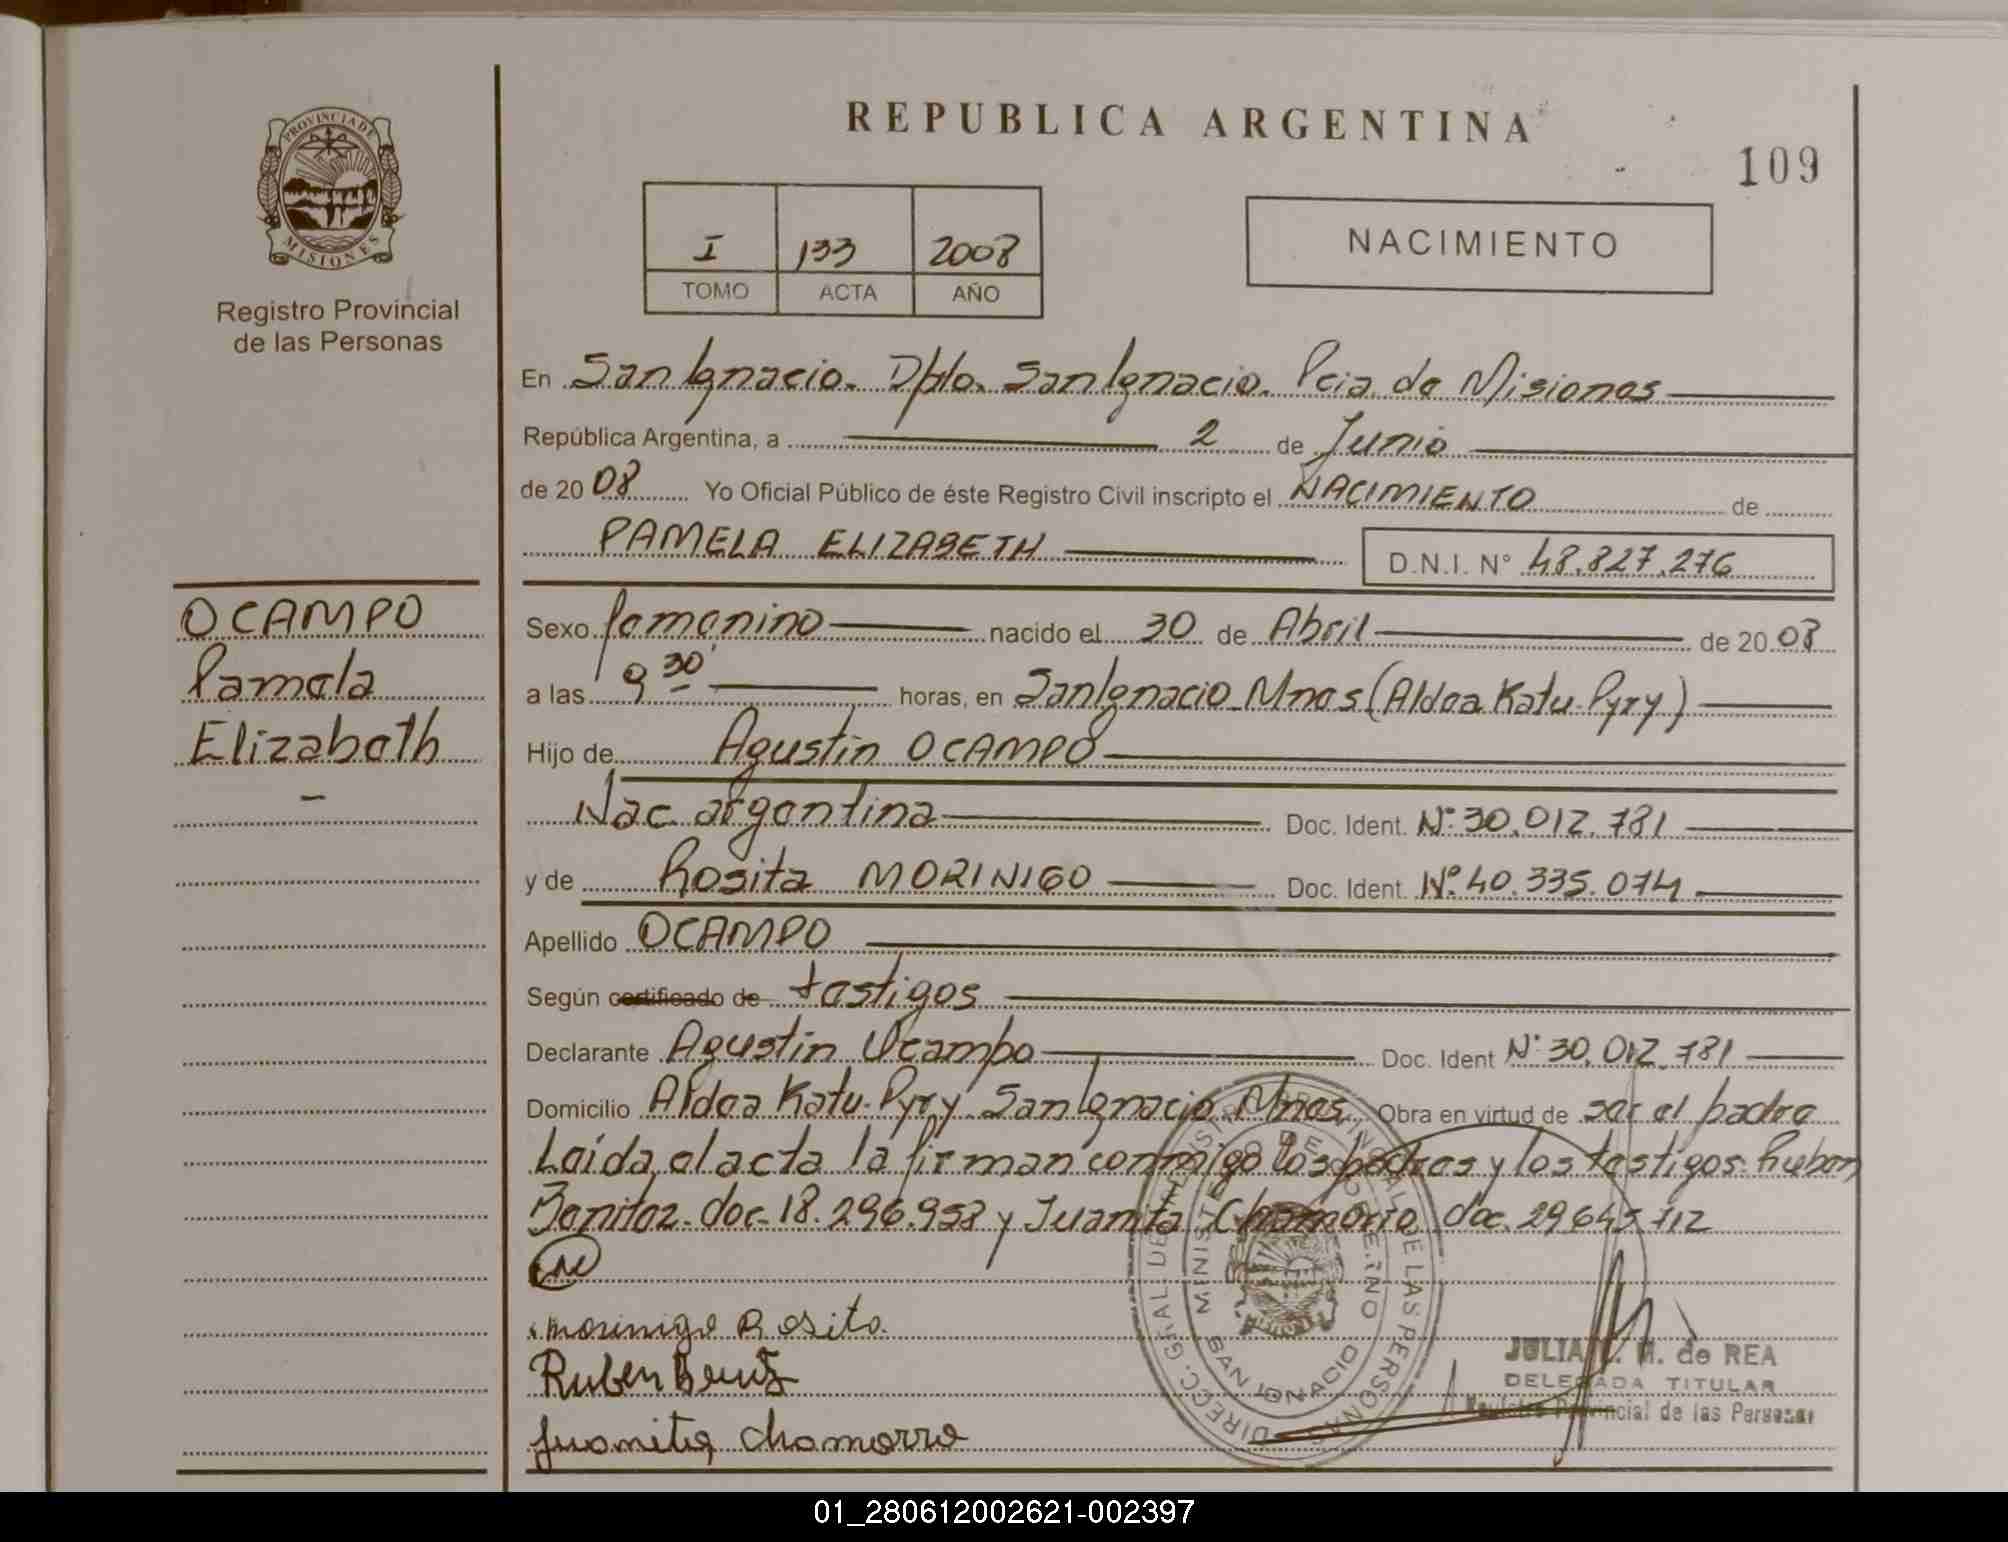 PROVINCIA DE
MISIONES
Registro Provincial
de las Personas
REPUBLICA ARGENTINA
109
I 133 2008
TOMO ACTA AÑO
NACIMIENTO
En San Ignacio. Dpto. San Ignacio. Pcia de Misiones
República Argentina, a 2 de Junio
de 20 08 Yo Oficial Público de éste Registro Civil inscripto el NACIMIENTO de
PAMELA ELIZABETH D.N.I. N° 48.827.276
OCAMPO
Pamela
Elizabeth
Sexo femenino nacido el 30 de Abril de 20 08
a las 9 30' horas, en San Ignacio Mnes (Aldea Katu-Pyry)
Hijo de Agustin OCAMPO
Nac. argentina Doc. Ident. N° 30.012.781
y de Rosita MORINIGO Doc. Ident. N° 40.335.074
Apellido OCAMPO
Según certificado de testigos
Declarante Agustin Ocampo Doc. Ident N° 30.012.781
Domicilio Aldea Katu-Pyry San Ignacio Mnes, Obra en virtud de ser el padre
Leída el acta la firman conmigo los padres y los testigos Ruben
Benitez doc 18.296.958 y Juanita Chamorro doc 29645712
morinigo Rosita
Ruben
Juanita chamorro
DIRECC. GRAL DE LAS PERSONAS
MINISTERIO DE GOBIERNO
SAN IGNACIO
JULIA M. de REA
DELEGADA TITULAR
Registro Provincial de las Personas
01_280612002621-002397